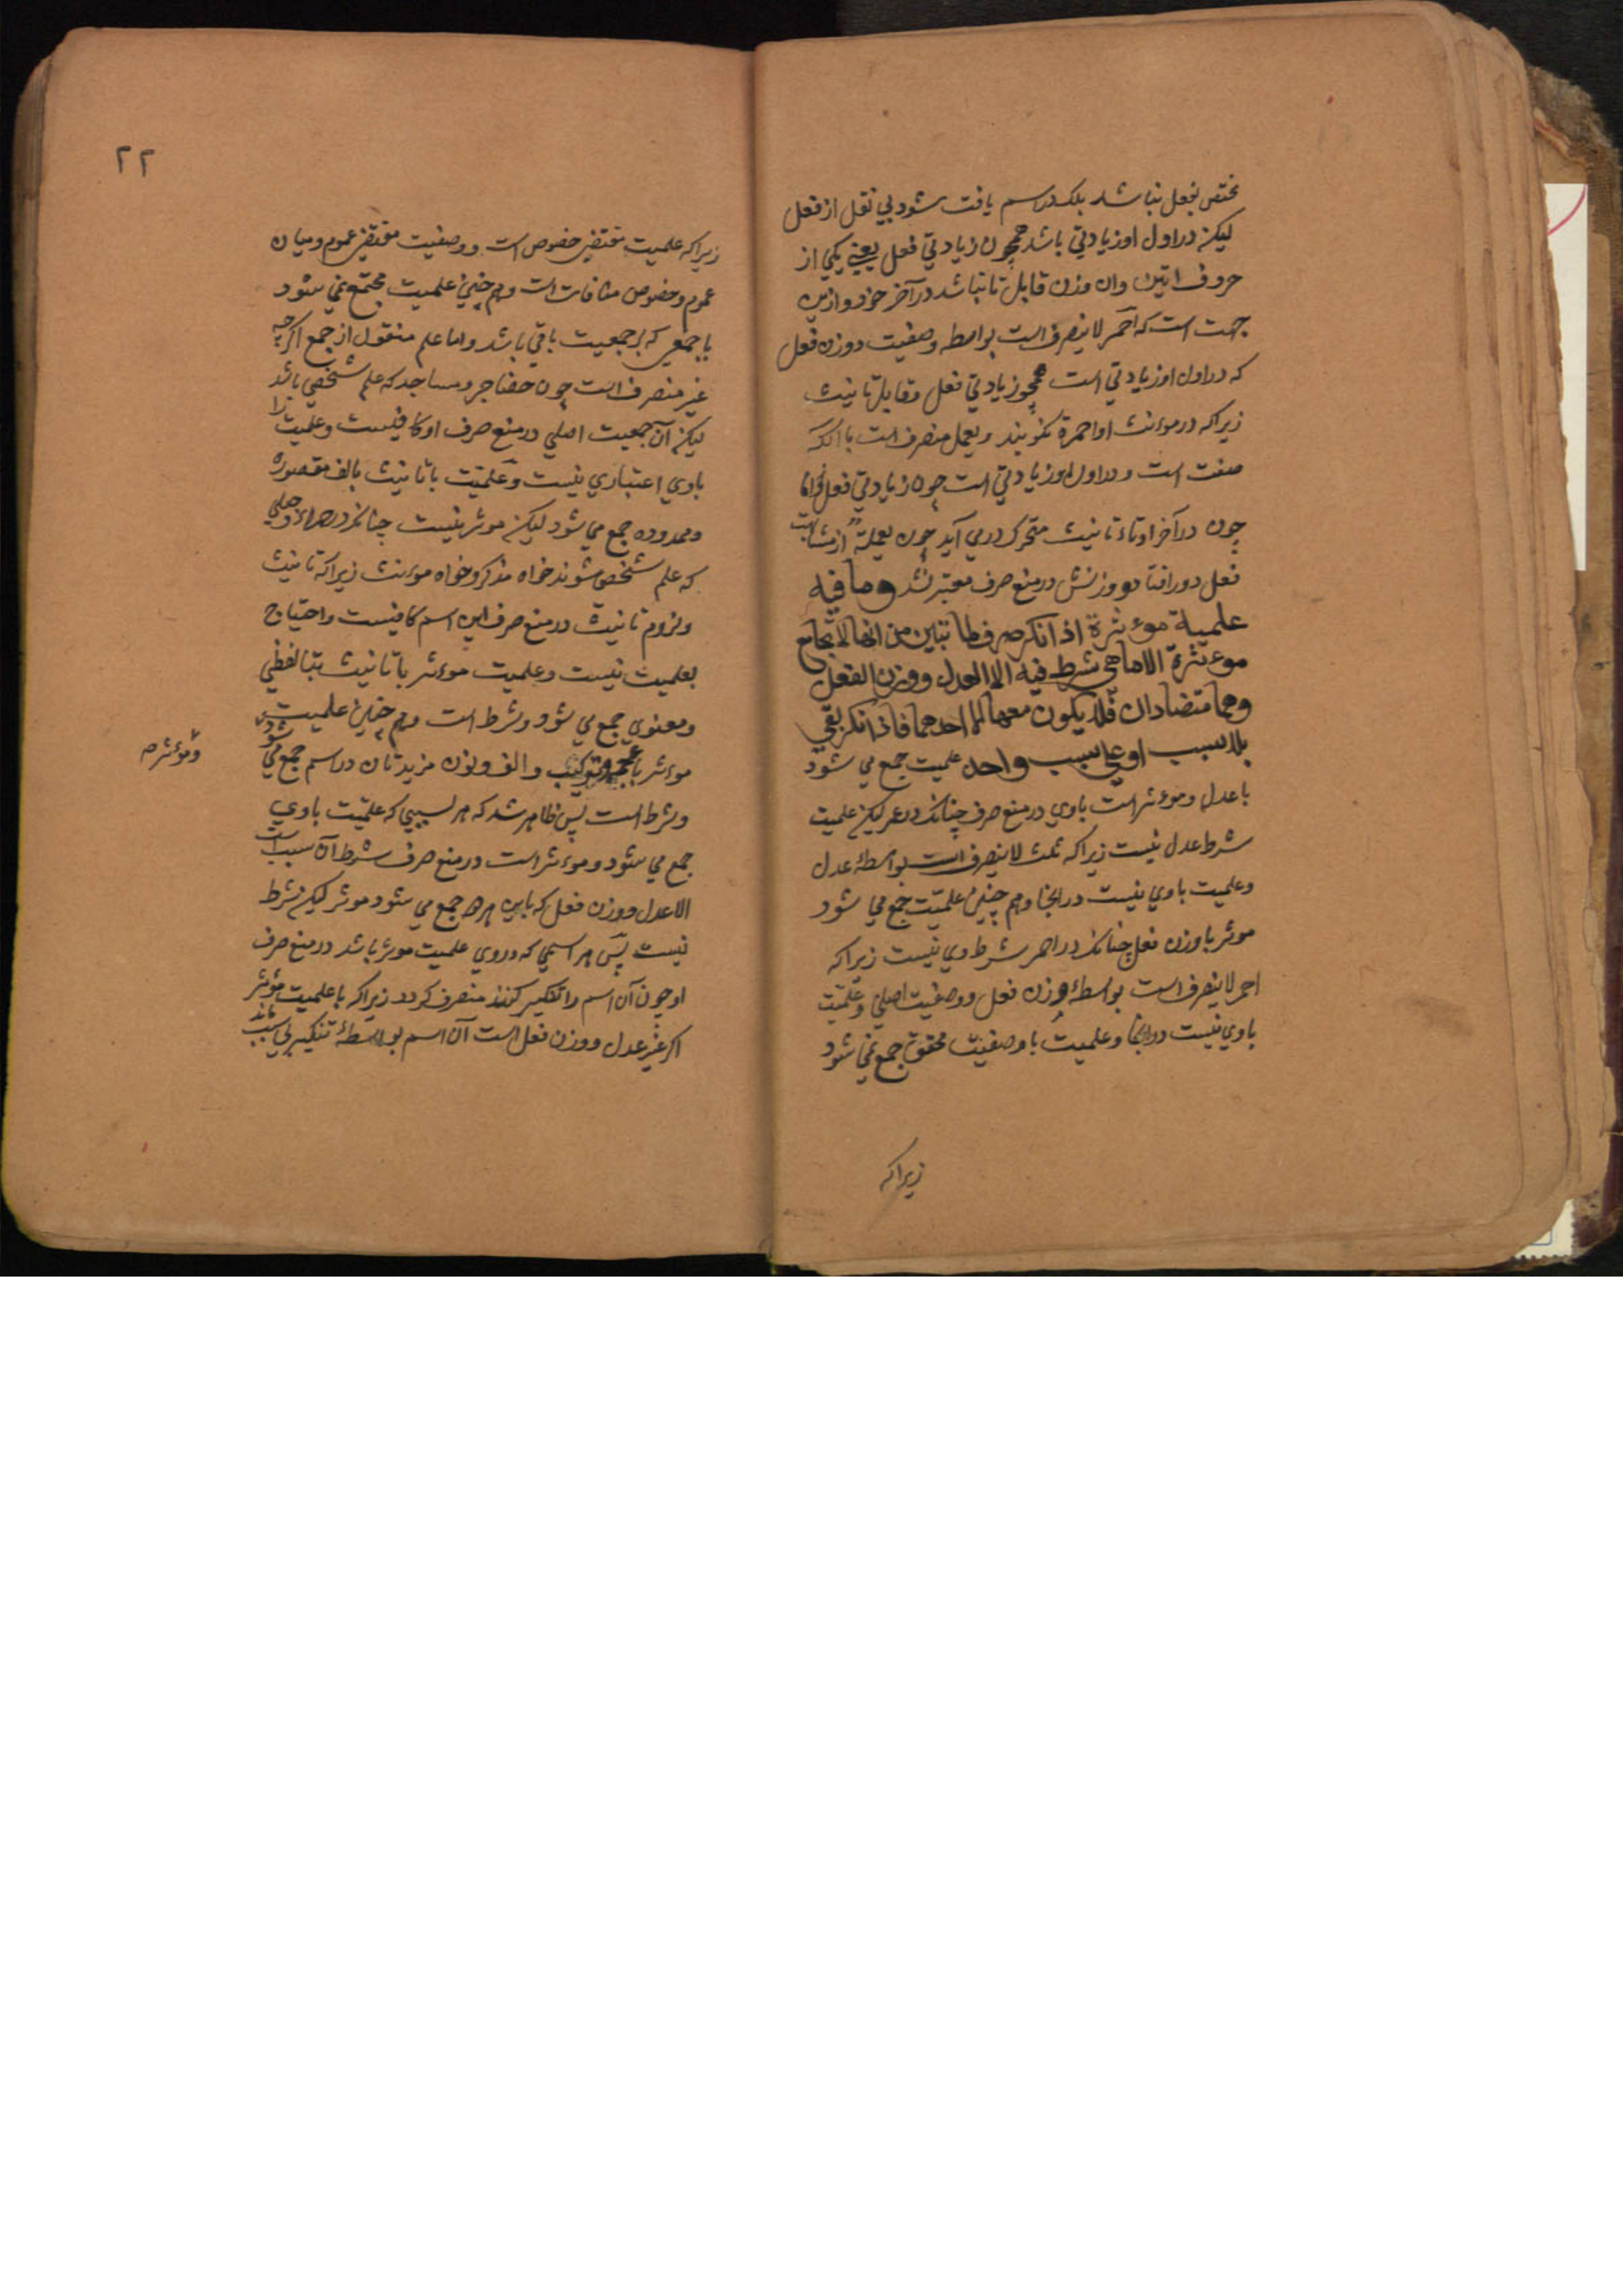 مختص بفعل نباشد بلکه در اسم یافت شود بی نقل از فعل
لیکن در اول او زیادتی باشد همچون زیادتی فعل یعنی یکی از
حروف اتین وان وزن قابل تا نباشد در آخر خود و ازین
جهت است که احمر لاینصرف است بواسطه وصفیت و وزن فعل
که در اول او زیادتی است همچو زیادتی فعل و قابل تانیث
زیراکه در موءنث او احمرة نکویند و یعمل منصرف است باآنکه
صفت است و در اول او زیادتی است چون زیادتی فعل
چون در آخر او تاء تانیث متحرک در می آید چون یعملة از مشابهت
فعل دور افتاد و وزنش در منع صرف معتبر نشد وما فیه
علمیة موءثرة اذا نکر صرف لما تبین من انها لا تجامع
موءثرة الا ما هی شرط فیه الا العدل ووزن الفعل
وهما متضادان فلا یکون معها الا احدهما فاذا نکر بقی
بلا سبب او علی سبب واحد علمیت جمع می شود
با عدل و موءثر است باوی در منع صرف چنانکه در عمر لیکن علمیت
شرط عدل نیست زیراکه ثلث لاینصرف است بواسطهٔ عدل
وعلمیت باوی نیست در اینجا وهم چنین علمیت جمع می شود
موثر با وزن فعل چنانکه در احمر شرط وی نیست زیراکه
احمر لاینصرف است بواسطهٔ وزن فعل ووصفیت اصلی وعلمیت
باوی نیست در اینجا وعلمیت با وصفیت محقق جمع نمی شود
زیراکه
۲۲
زیراکه علمیت مقتضی خصوص است ووصفیت مقتضی عموم ومیان
عموم وخصوص منافات است وهم چنین علمیت مجتمع نمی شود
با جمعی که بر جمعیت باقی باشد واما علم منقول از جمع اکرچه
غیر منصرف است چون حضاجر ومساجد که علم شخصی باشد
لیکن آن جمعیت اصلی در منع صرف او کافیست وعلمیت را
باوی اعتباری نیست وعلمیت با تانیث بالف مقصوره
وممدوده جمع می شود لیکن موثر نیست چنانکه در صحراء وحبلی
که علم شخص شوند خواه مذکر وخواه موءنث زیراکه تانیث
ولزوم تانیث در منع صرف این اسم کافیست واحتیاج
بعلمیت نیست وعلمیت موءثر با تانیث بتا لفظی
ومعنوی جمع می شود وشرط است وهم چنین علمیت
موءثر با عجمه وترکیب والف ونون مزیدتان در اسم جمع می شود
وموءثر
وشرط است پس ظاهر شد که هر سببی که علمیت باوی
جمع می شود وموءثر است در منع صرف شرط آن سبب است
الا عدل ووزن فعل که باین هر دو جمع می شود موثر لیکن شرط
نیست پس هر اسمی که در وی علمیت موثر باشد در منع صرف
او چون آن اسم را تنکیر کنند منصرف کردد زیراکه با علمیت موثر
اکر غیر عدل ووزن فعل است آن اسم بواسطهٔ تنکیر بی سبب ماند